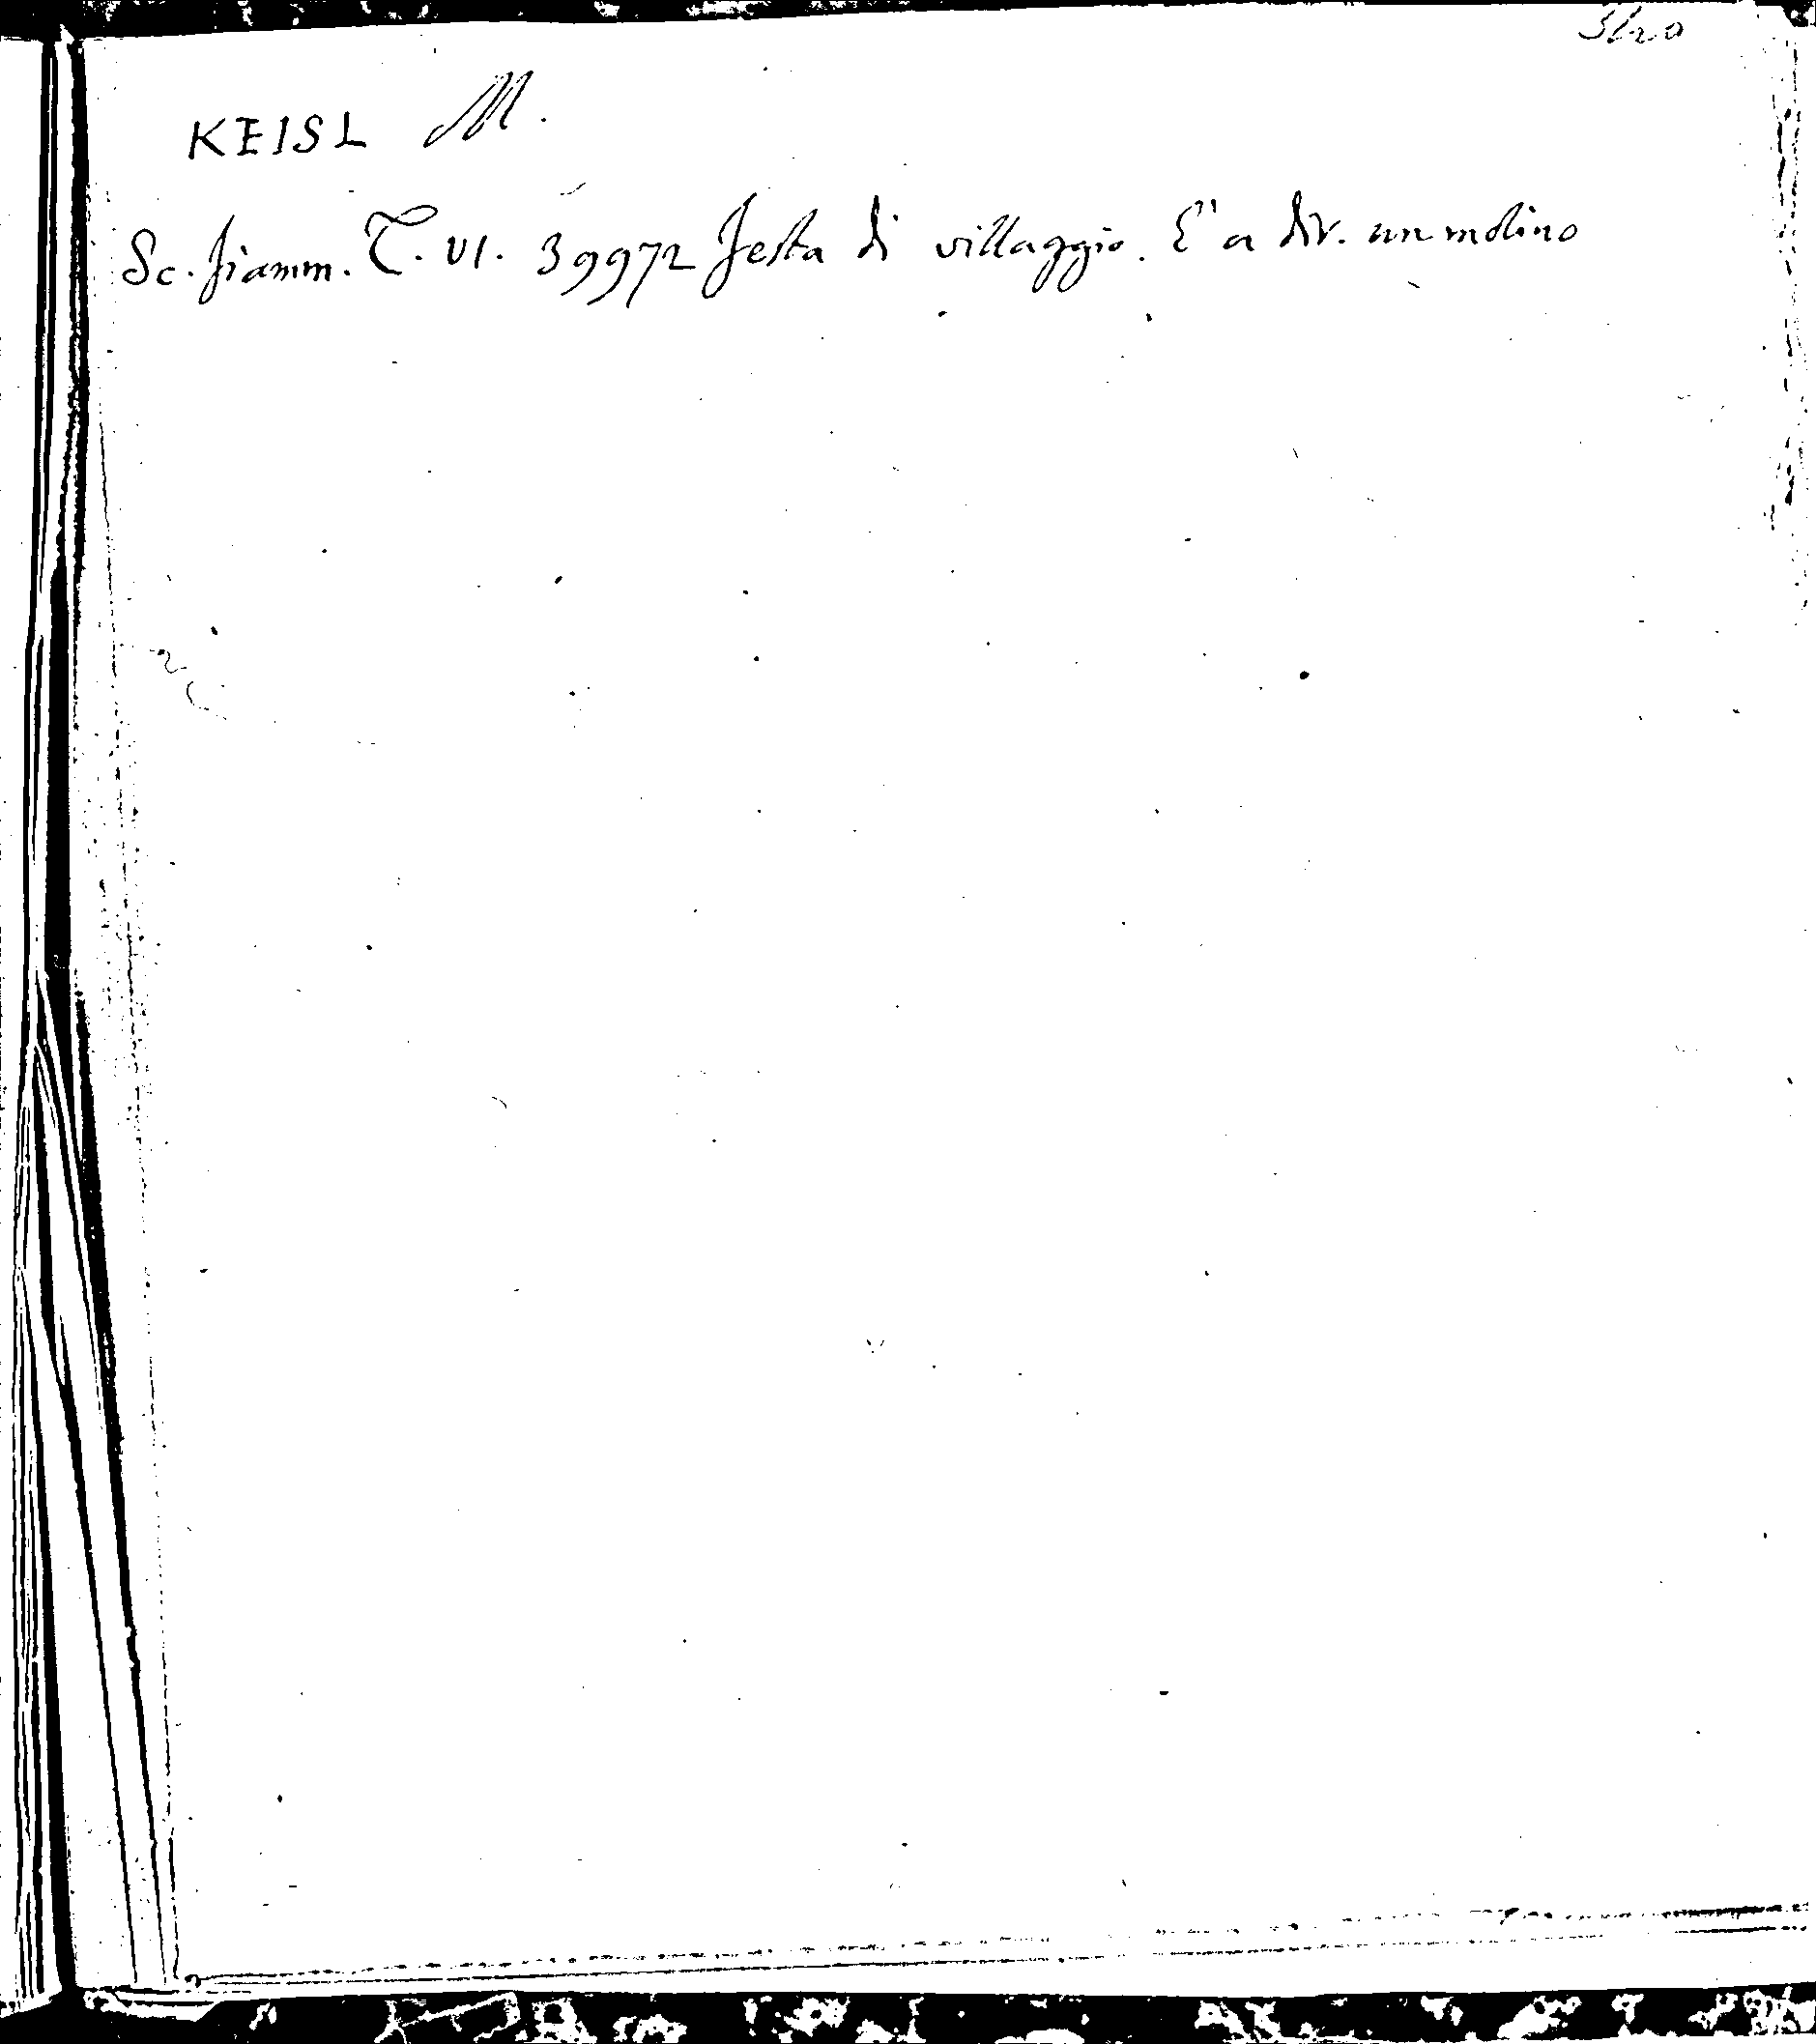 KEISL M.
Sc. fiamm. T. VI. 39972 Festa di villaggio. E' a div. un molino